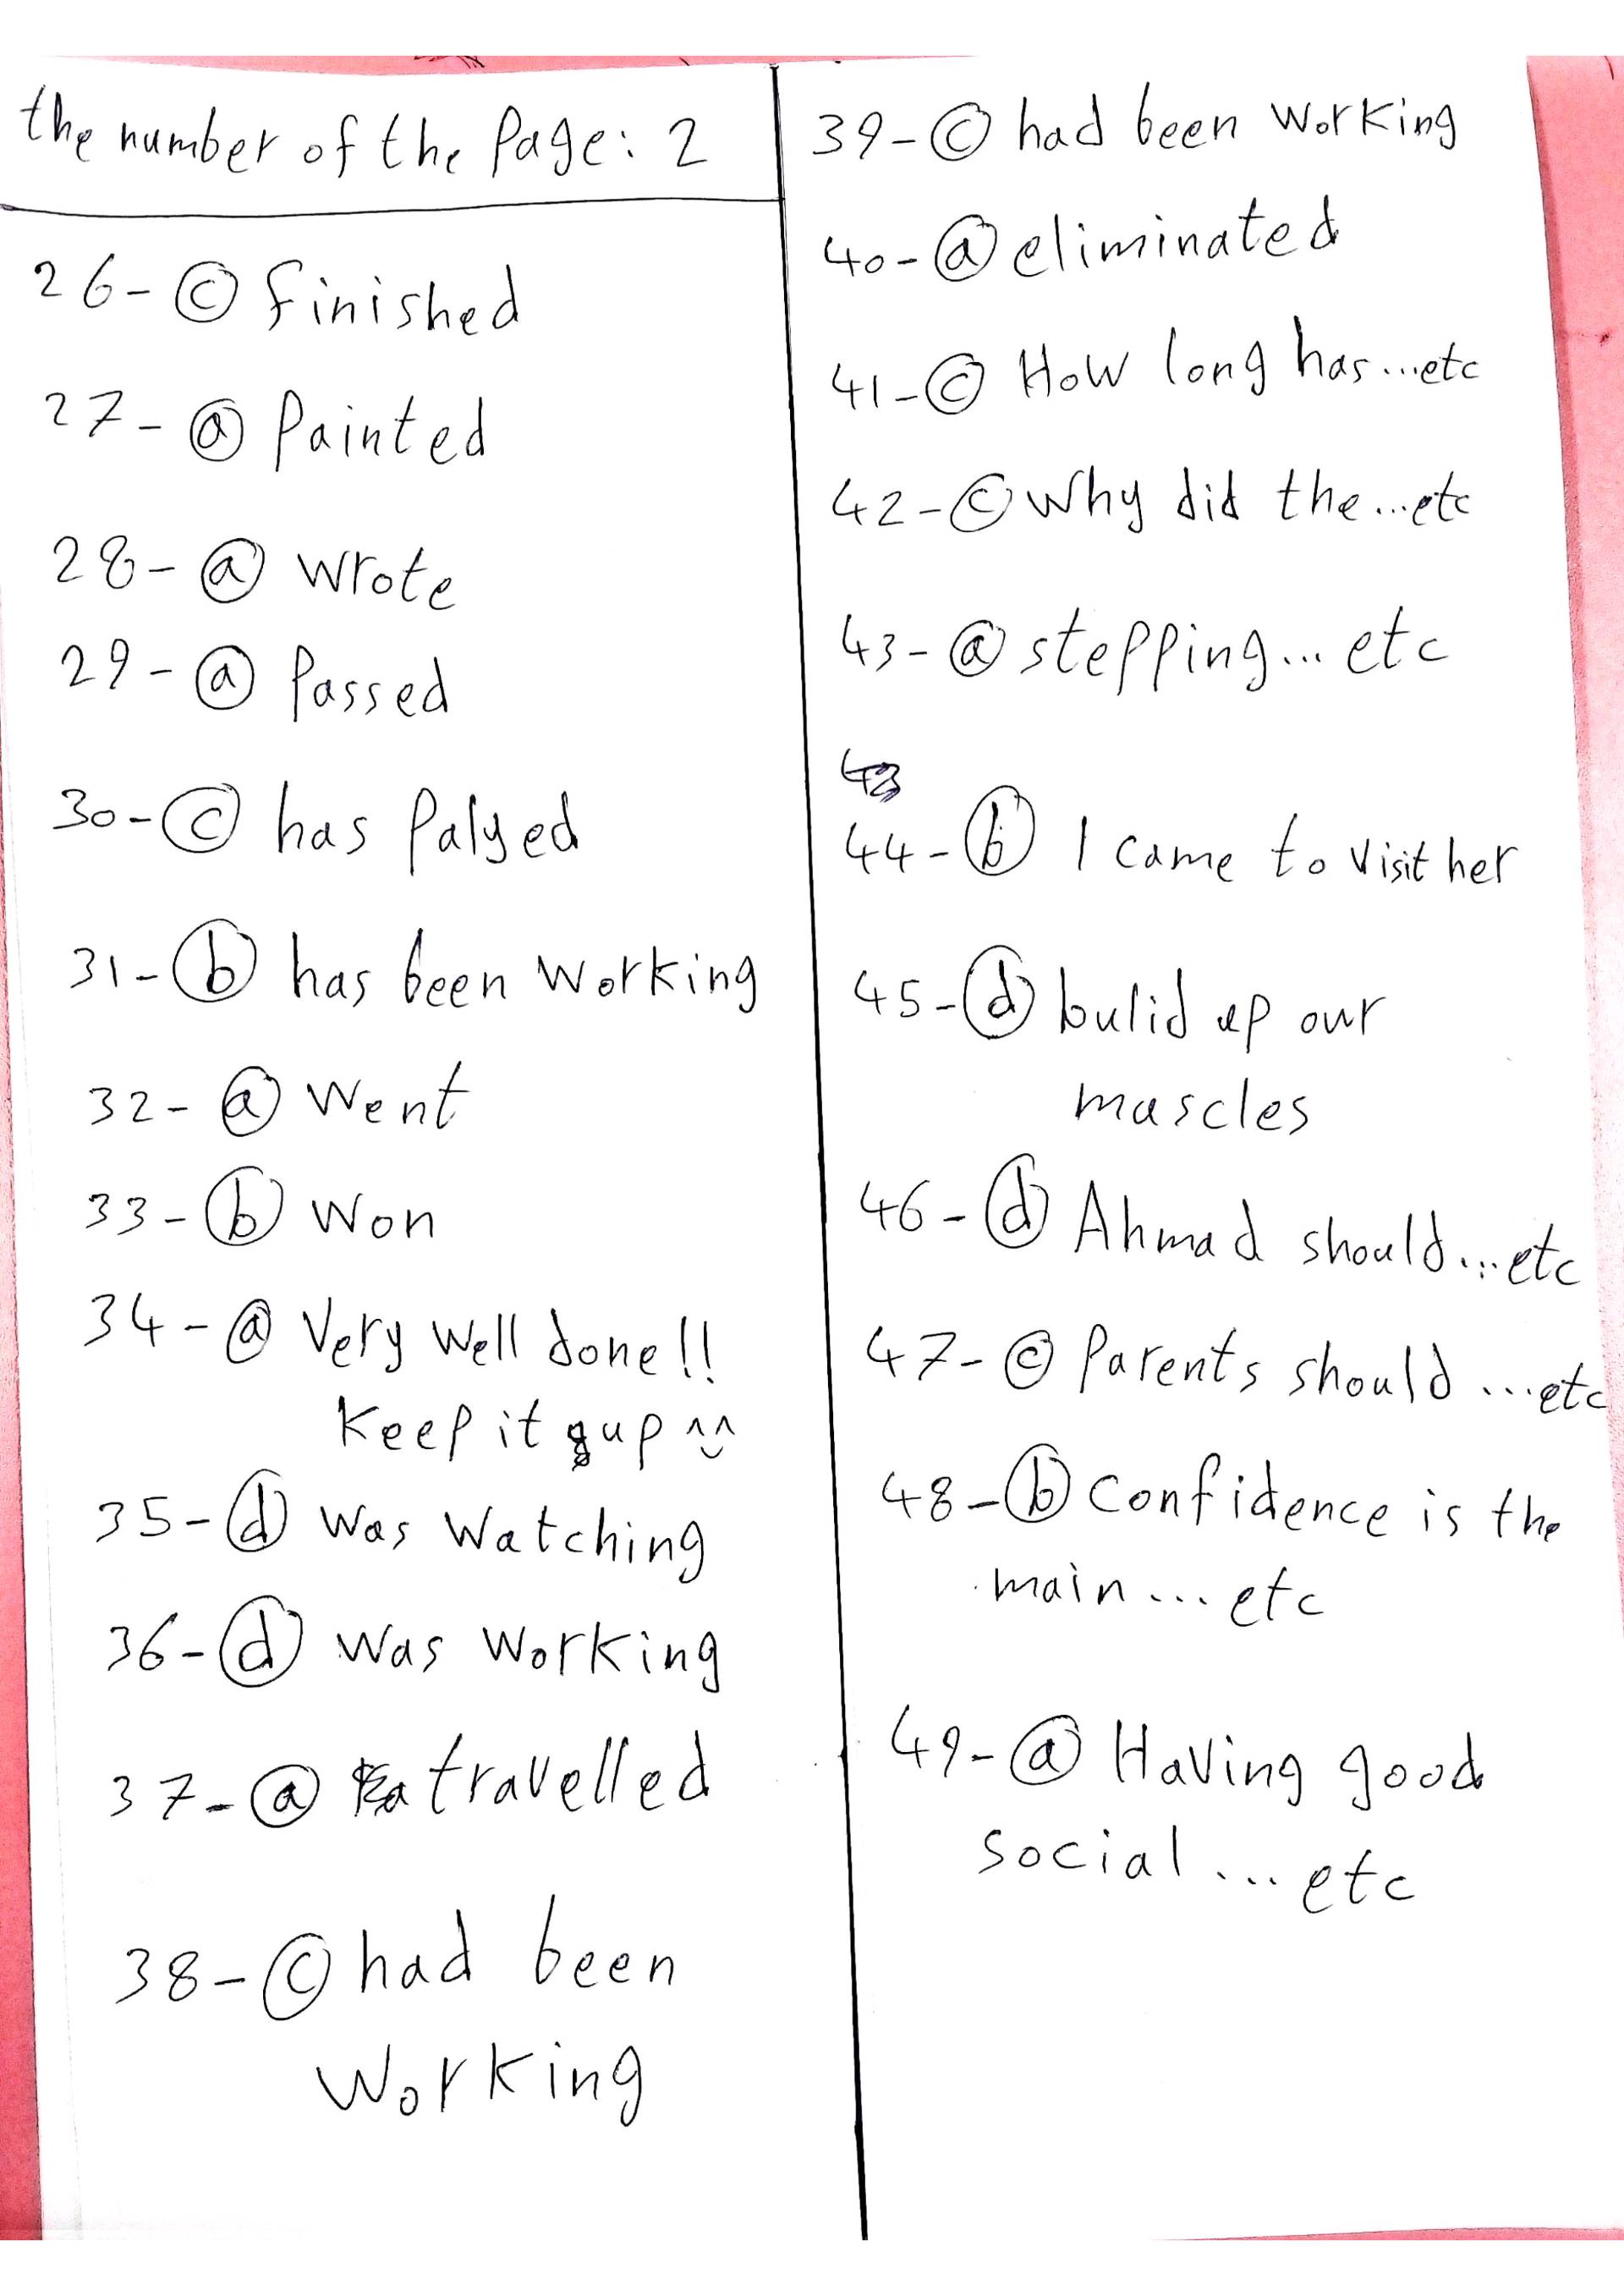 the number of the Page: 2
26- c finished
27- a Painted
28- a wrote
29- a Passed
30- c has Palyed
31- b has been working
32- a went
33- b won
34- a Very well done!!
Keep it up ^^
35- d was watching
36- d was working
37- a travelled
38- c had been
working
39- c had been working
40- a eliminated
41- c How long has...etc
42- c why did the...etc
43- a stepping... etc
44- b I came to visit her
45- d bulid up our
muscles
46- d Ahmad should...etc
47- c Parents should ...etc
48- b confidence is the
main... etc
49- a Having good
social ... etc